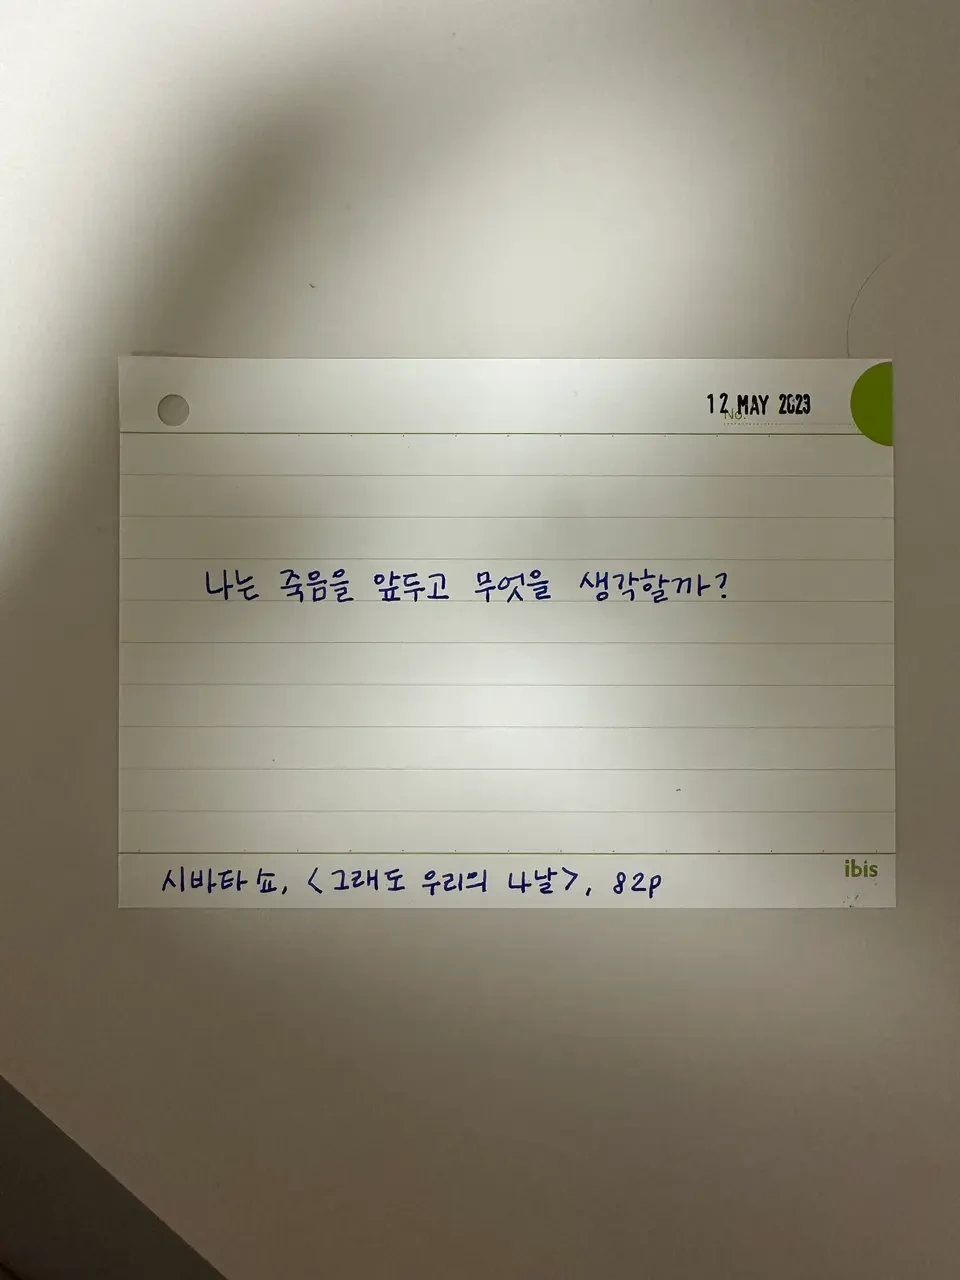 12 MAY 2023
No.
나는 죽음을 앞두고 무엇을 생각할까?
시바타 쇼, <그래도 우리의 나날>, 82p
ibis